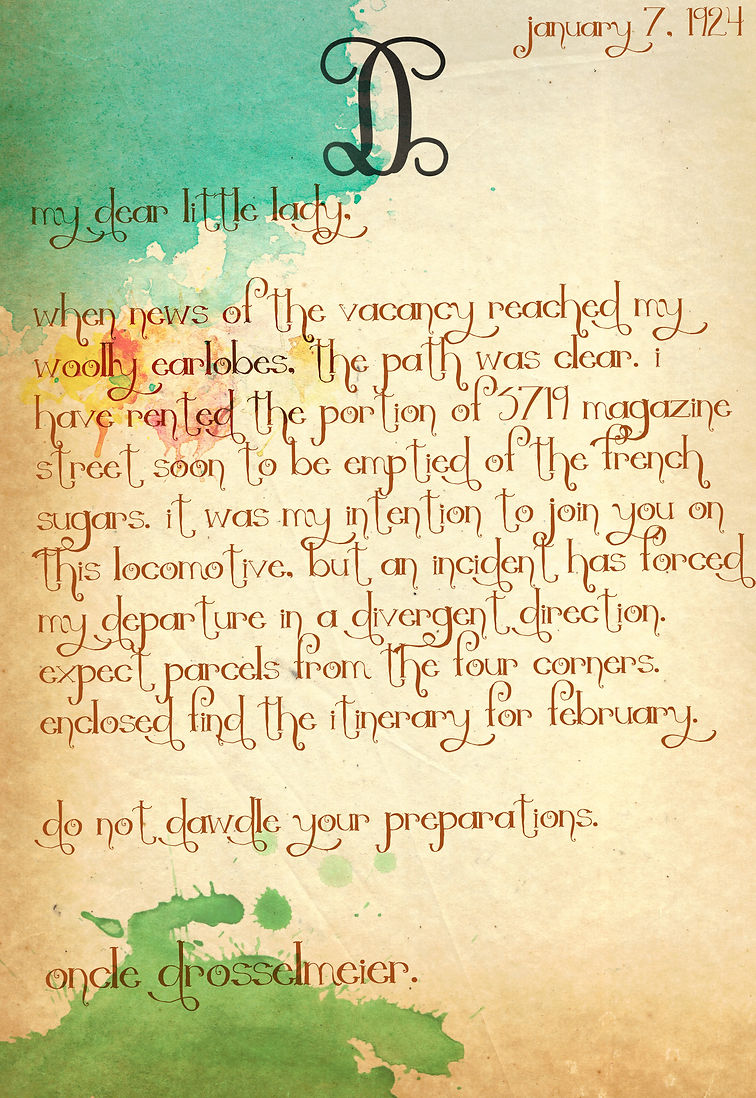 january 7, 1924
D
my dear little lady,
when news of the vacancy reached my
woolly earlobes, the path was clear. i
have rented the portion of 3719 magazine
street soon to be emptied of the french
sugars. it was my intention to join you on
this locomotive, but an incident has forced
my departure in a divergent direction.
expect parcels from the four corners.
enclosed find the itinerary for february.
do not dawdle your preparations.
oncle drosselmeier.